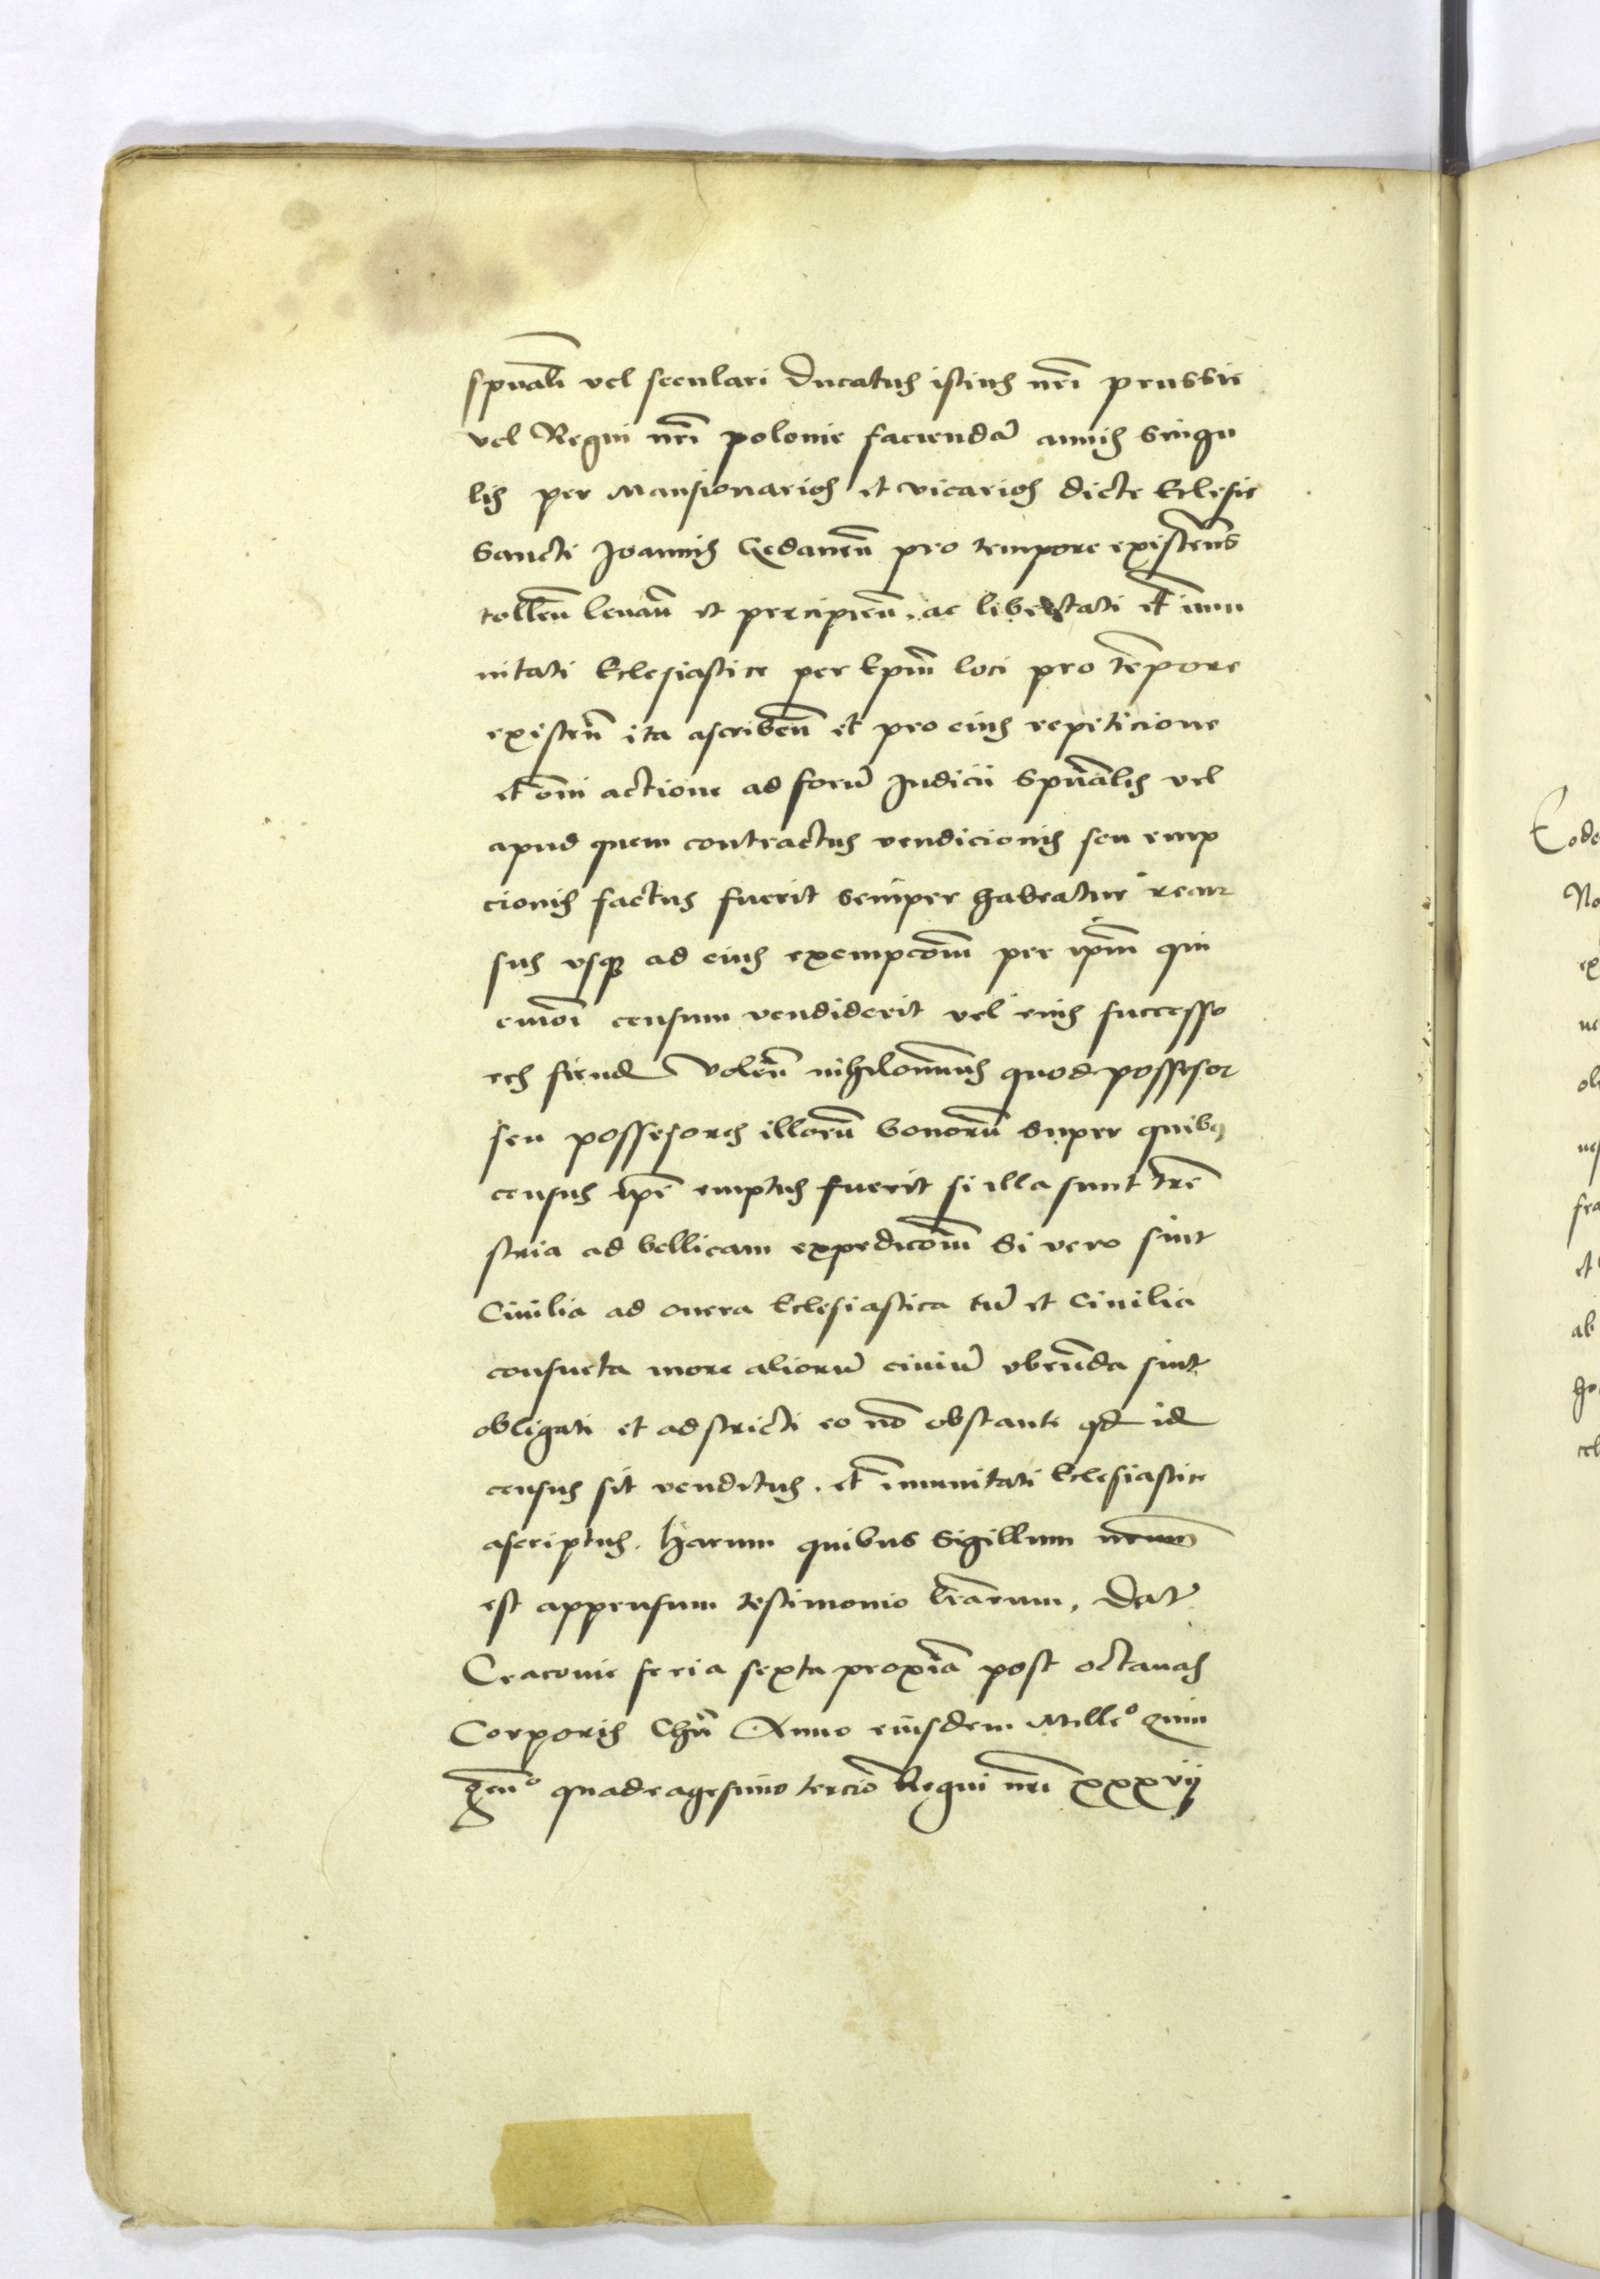 spũali vel seculari Ducatus istius nr̃i prussie
vel Regni nr̃i polonie faciendã annis singu
lis per Mansionarios et vicarios dicte Eclesie
Sancti Joannis Gedaneñ pro tempore existeñs
tolleñ levañ et percipieñ. ac libertati et im̃u
nitati Eclesiastice per Ep̃m loci pro tẽpore
existeñ ita ascribeñ et pro eius repeticione
et õm̃i actione ad forũ Judicii Spũalis vel
apud quem contractus vendicionis seu emp
cionis factus fuerit semper habeatur recur
sus usq̃ ad eius exempcõm̃ per ip̃m qui
censum vendiderit vel eius successo
res fiend Voleñ nihilominus quod possesor
seu possesores illorũ bonorũ super quibꝫ
census ip̃e emptus fuerit si illa sunt tr̃e
stria ad bellicam expedicõm̃ Si vero sint
Civilia ad onera Eclesiastica tũ et Civilia
consueta more aliorũ civiũ obeũda sint
obligati et adstricti eo nõ obstante qd id
census sit venditus. et im̃unitati Eclesiastice
ascriptus. Harum quibus Sigillum nr̃um
est appensum testimonio lr̃arum, Dat
Cracovie feria sexta proxĩa post octavas
Corporis Chr̃i Anno eiusdem Mille⁰ quin
geñ⁰ quadragesimo tercio Regni nr̃i xxxvij
Eode
No
ex
ne
fra
et
ab